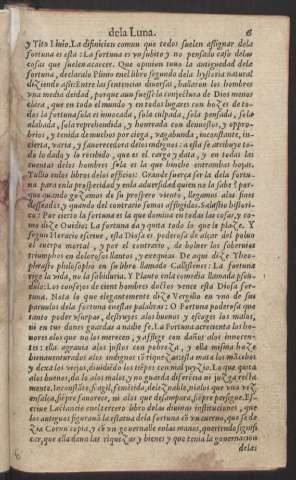 dela Luna. 6
y Tito Liuio. La difinicion comun que todos suelen assignar dela
fortuna es esta: La fortuna es vn subito y no pensado caso delas
cosas que suelen acaecer. Que opinion tuuo la antiguedad dela
fortuna, declaralo Plinio enel libro segundo dela hystoria natural
diziendo assi: Entre las sentencias diuersas, hallaron los hombres
vna media deidad, porque aun fuesse la conjectura de Dios menos
clara, que en todo el mundo y en todos lugares con bozes de to-
dos la fortuna sola es inuocada, sola culpada, sola pensada, sola
alabada, sola reprehendida, y honrrada con denuestos, y oppro-
brios, y tenida de muchos por ciega, vagabunda, inconstante, in-
cierta, varia, y fauorecedora delos indignos: a ella se atribuye to-
do lo dado y lo recebido, que es el cargo y data, y en todas las
cuentas delos hombres sola es la que hinche entrambas hojas.
Tullio enlos libros delos officios: Grande fuerça ser la dela fortu-
na para enla prosperidad y enla aduersidad quien no la sabe? por-
que quando gozamos de su prospero viento, llegamos alos fines
desseados, y quando del contrario somos affligidos. Salustio histori-
co: Por cierto la fortuna es la que domina en todas las cosas, y co-
mo dize Ouidio: La fortuna da y quita todo lo que le plaze. Y
segun Horacio escriue, esta Diosa es poderosa de alçar del poluo
el cuerpo mortal, y por el contrario, de boluer los soberuios
triumphos en dolorosos llantos, y exequias. De aqui dize Theo-
phrasto philosopho en su libro llamado Callistenes: La fortuna
rige la vida, no la sabiduria. Y Plauto enla comedia llamada pseu-
dulo: Los consejos de cient hombres doctos vence esta Diosa for-
tuna. Nota lo que elegantemente dize Vergilio en vno de sus
paruulos dela fortuna enestas palabras: O Fortuna poderosa que
tanto poder vsurpas, destruyes alos buenos y escoges los malos,
ni en tus dones guardas a nadie fe. La Fortuna acrecienta los ho-
nores alos que no los merecen, y aflige con daños alos innocen-
tes: ella agrauia alos justos con pobreza, y ella misma haze
bienauenturados alos indignos cō riquezas: esta mata los mācebos
y dexa los viejos, diuidiēdo los tiēpos con mal juyzio. Lo que quita
alos buenos, da lo alos malos, y no guarda diferēcia ni juzga recta
mente. Inconstāte, fragil, femētida, deleznable, ni alos que vna vez
ensalça, siēpre fauorece, ni alos que desampara, siēpre persigue. Es-
criue Lactancio enel tercero libro delas diuinas instituciones, que
los antiguos figurarō la estatua dela fortuna cō vn cuerno, que se de-
zia Cornucopia, y cō vn gouernalle enlas manos, queriendo signifi
car, que ella daua las riquezas y bienes y que tenia la gouernacion
delas